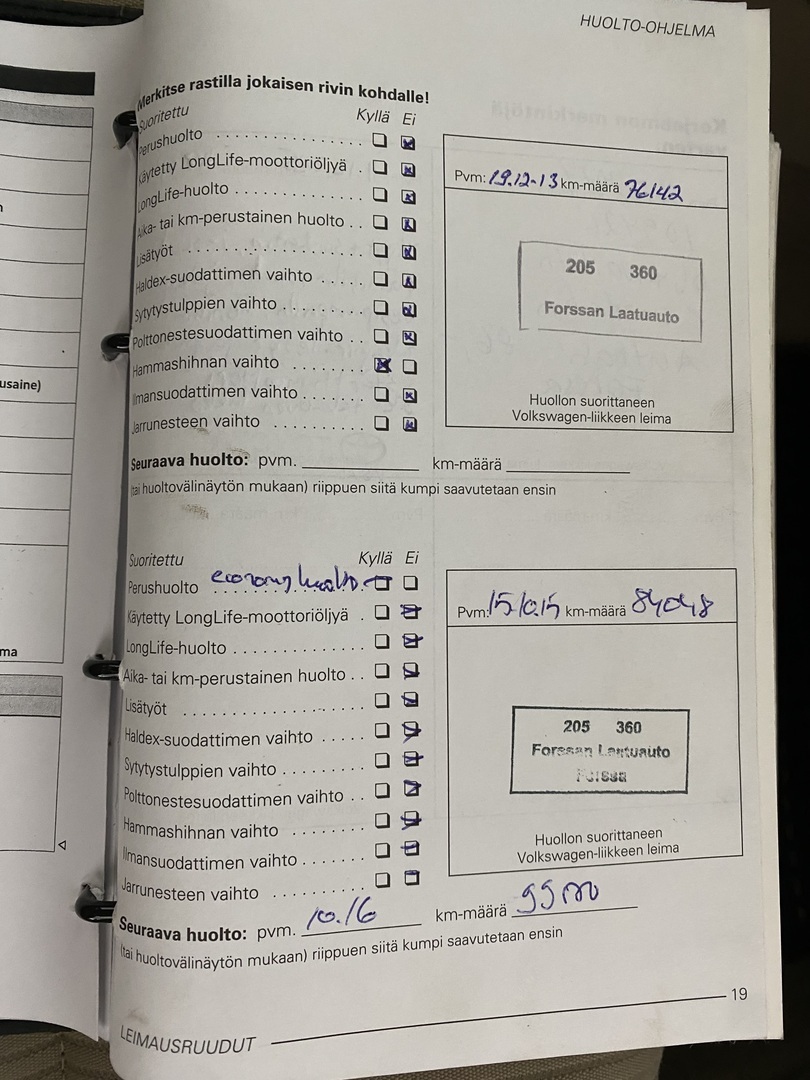 HUOLTO-OHJELMA
Merkitse rastilla jokaisen rivin kohdalle!
Suoritettu Kyllä Ei
Perushuolto
Käytetty LongLife-moottoriöljyä
LongLife-huolto
Aika- tai km-perustainen huolto
Lisätyöt
Haldex-suodattimen vaihto
Sytytystulppien vaihto
Polttonestesuodattimen vaihto
Hammashihnan vaihto
Ilmansuodattimen vaihto
Jarrunesteen vaihto
Pvm: 19.12-13 km-määrä 76142
205 360
Forssan Laatuauto
Huollon suorittaneen
Volkswagen-liikkeen leima
Seuraava huolto: pvm. km-määrä
(tai huoltovälinäytön mukaan) riippuen siitä kumpi saavutetaan ensin
Suoritettu Kyllä Ei
Perushuolto economy huolto
Käytetty LongLife-moottoriöljyä
LongLife-huolto
Aika- tai km-perustainen huolto
Lisätyöt
Haldex-suodattimen vaihto
Sytytystulppien vaihto
Polttonestesuodattimen vaihto
Hammashihnan vaihto
Ilmansuodattimen vaihto
Jarrunesteen vaihto
Pvm: 15.10.15 km-määrä 84048
205 360
Forssan Laatuauto
Forssa
Huollon suorittaneen
Volkswagen-liikkeen leima
Seuraava huolto: pvm. 10.16 km-määrä
(tai huoltovälinäytön mukaan) riippuen siitä kumpi saavutetaan ensin
19
LEIMAUSRUUDUT
usaine)
ma